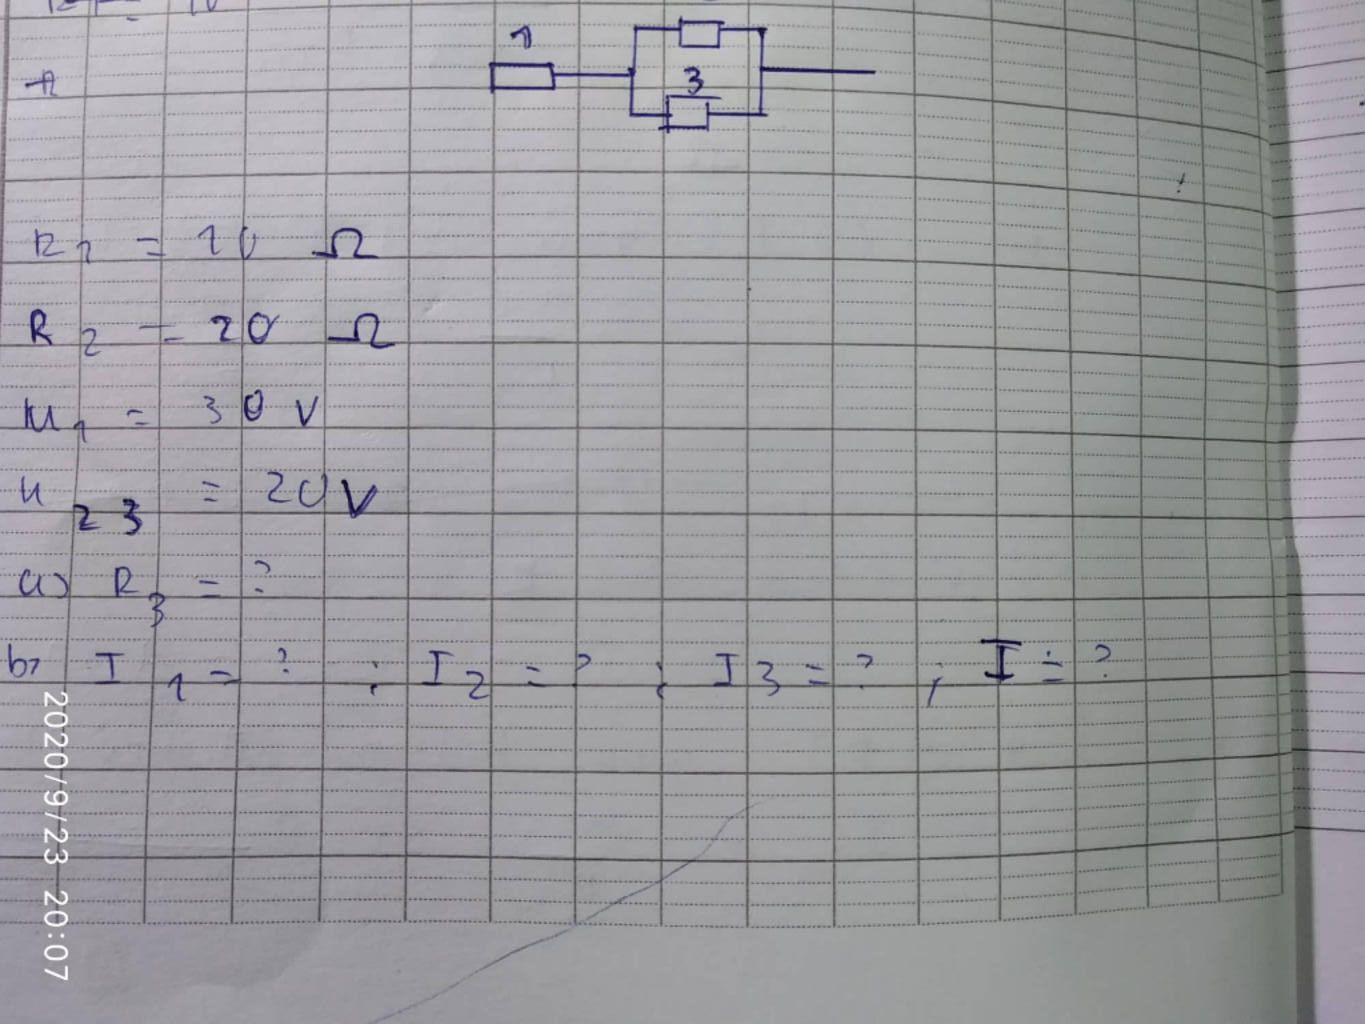 1
3
R1 = 10 Ω
R2 = 20 Ω
U1 = 30 V
U23 = 20V
a) R3 = ?
b) I1 = ? ; I2 = ? ; I3 = ? ; I = ?
2020/9/23 20:07